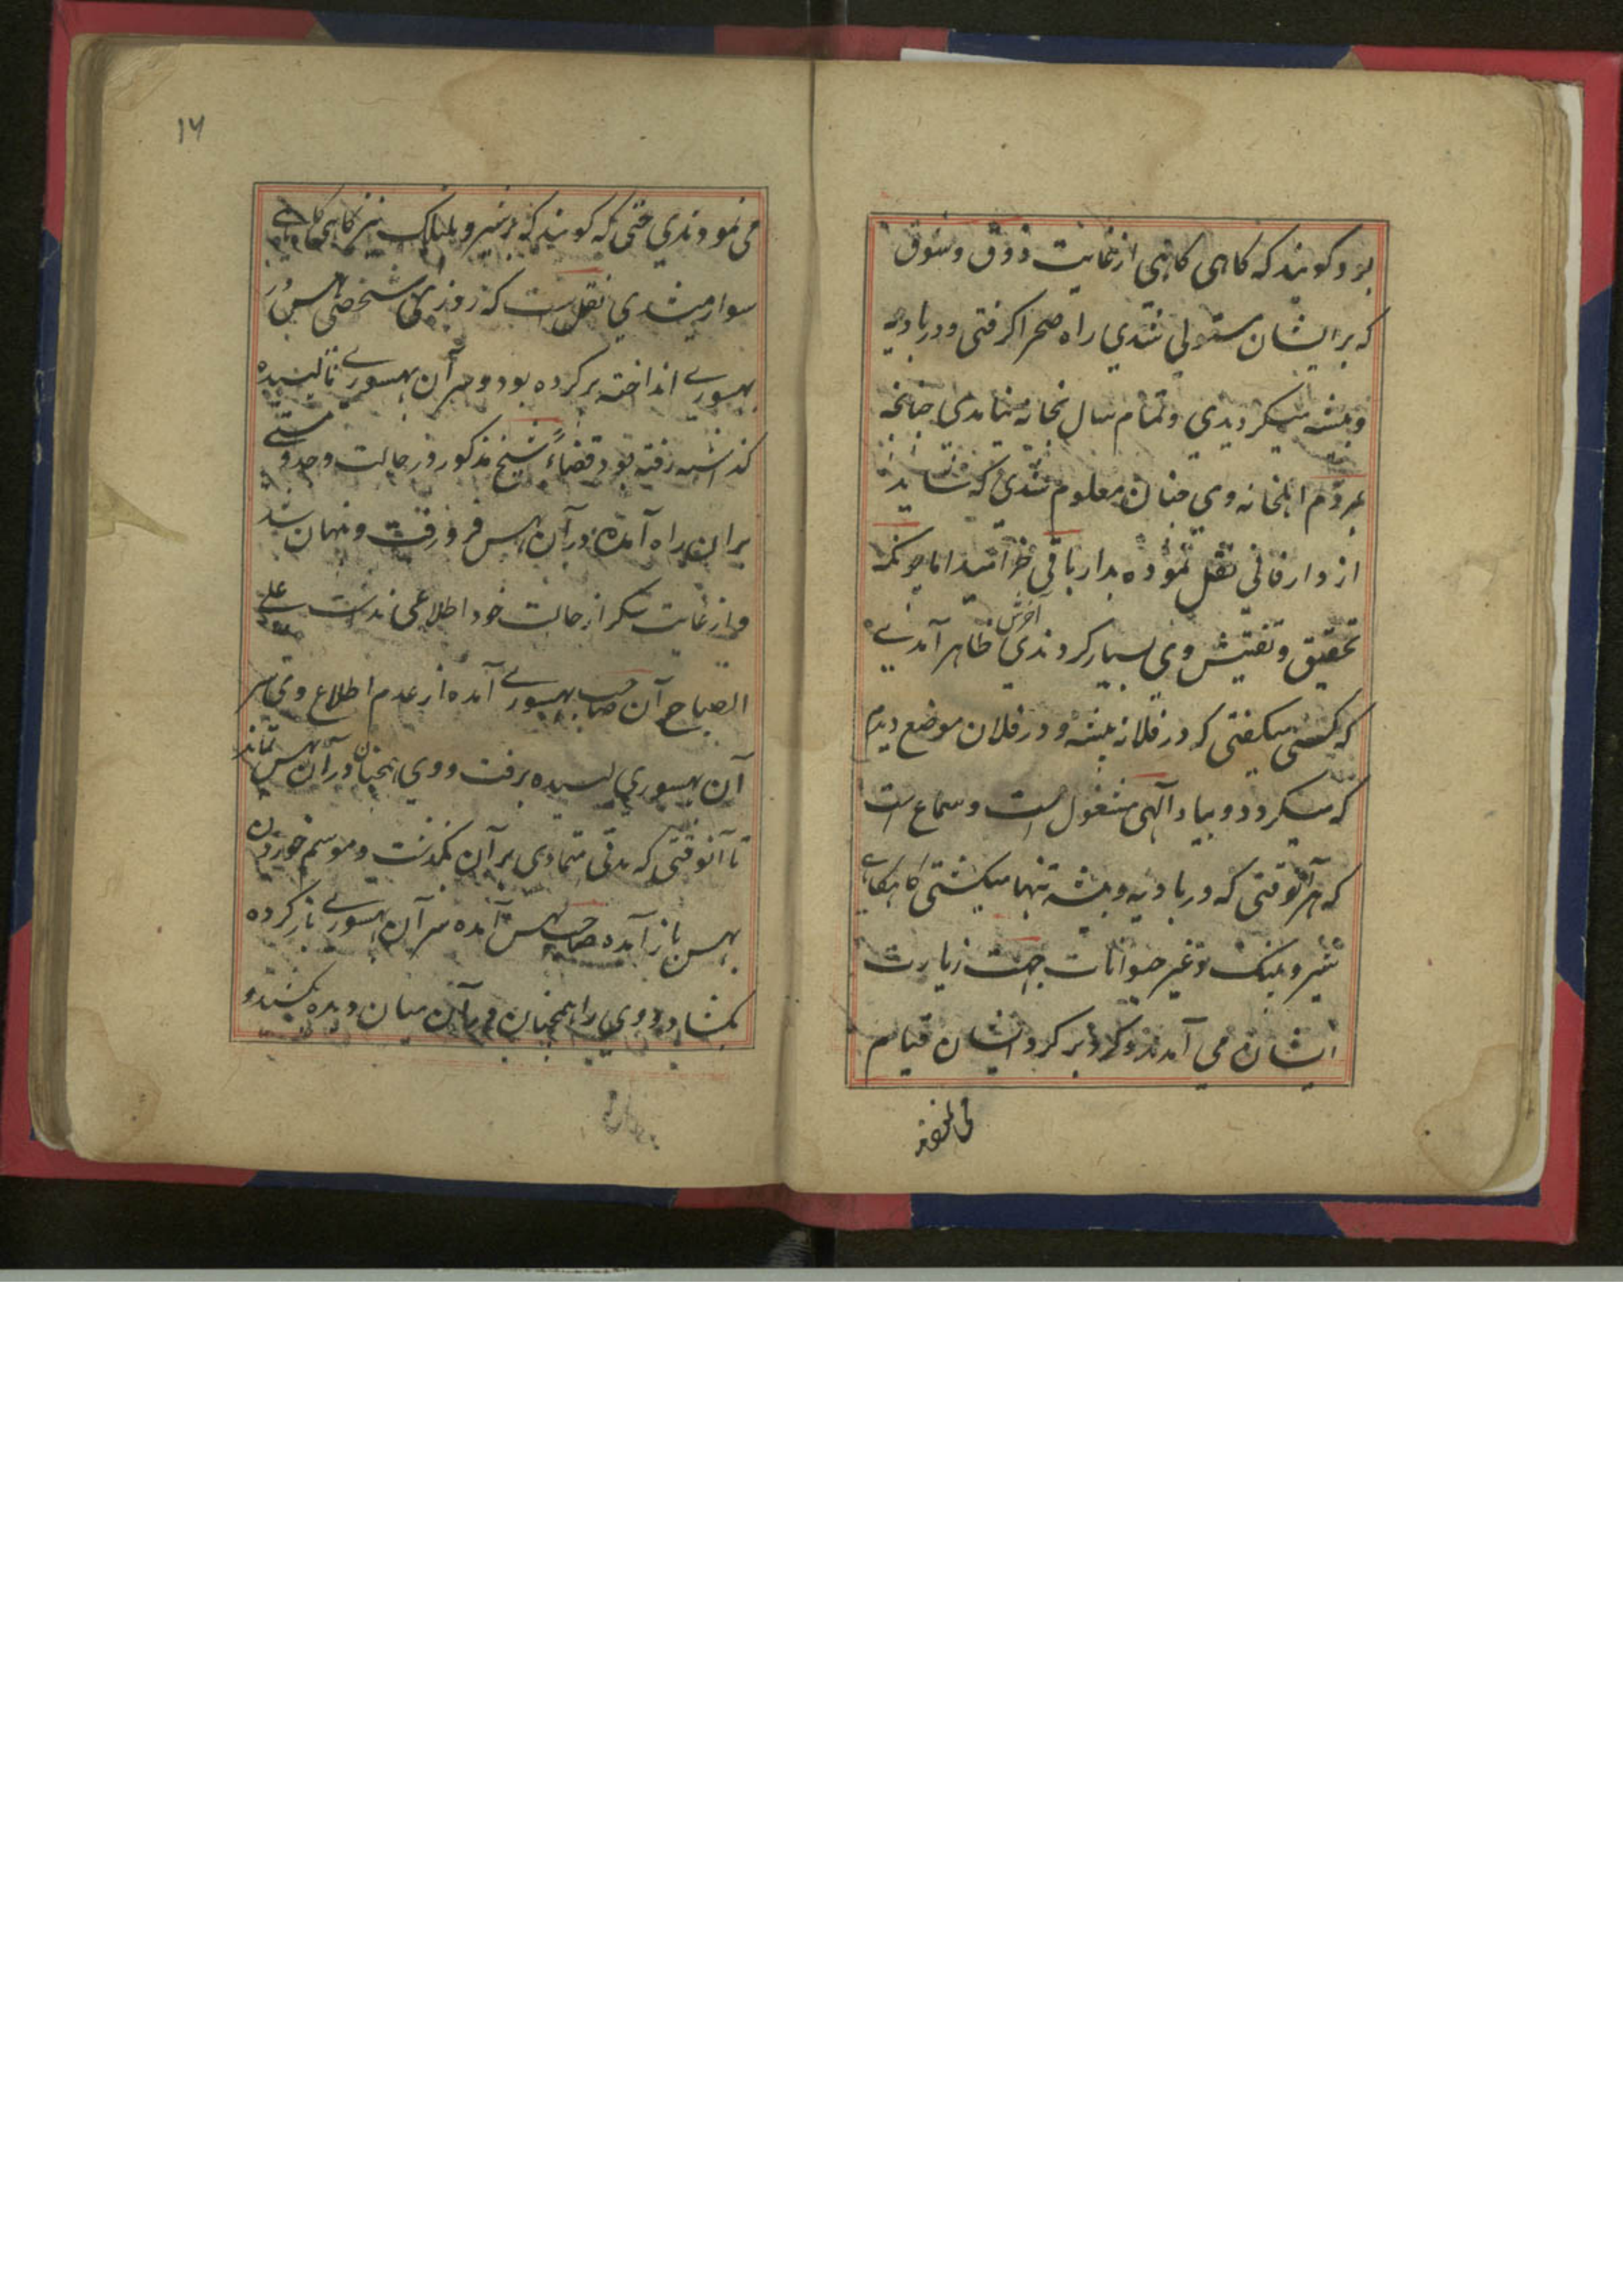 برد گویند که کاهی کاهی از غایت ذوق و شوق
که بر ایشان مستولی شدی راه صحرا کرفتی و در بادیه
و بیشه میکردیدی و تمام سال بخانه نیامدی چنانچه
بمردم اهلخانه وی چنان معلوم شدی که شاید
از دار فانی نقل نموده بدار باقی خرامید اما چونکه
تحقیق و تفتیش وی بسیار کردندی آخرش ظاهر آمدنی
که کسی میکفتی که در فلانه بیشه و در فلان موضع دیدم
که میکردد و بیاد آلهی مشغول است و سماع است
که هر آنوقتی که در بادیه و بیشه تنها میکشتی کاه کاهی
شیر و پلنک و غیر حیوانات جهت زیارت
ایشان می آمدند و کرد بر کرد ایشان قیام
۱۶
می نمودندی حتی که کویند که بر شیر و پلنک نیز کاهی کاهی
سوار میشدی نقل است که روزی شخصی بهس در
بهسوری انداخته پر کرده بود و سر آن بهسوری نالیسیده
کذاشته رفته بود قضاءً شیخ مذکور در حالت وجد و مستی
بران راه آمده در آن بهس فرو رفت و نهان شد
و از غایت سکر از حالت خود اطلاعی نداشت علی
الصباح آن صاحب بهسوری آمده از عدم اطلاع وی سر
آن بهسوری لیسیده برفت و وی همچنان در آن بهس بماند
تا آنوقتی که مدتی متمادی بر آن بکذشت و موسم خوردن
بهس باز آمده صاحب بهس آمده سر آن بهسوری باز کرده
بکشاد و وی را همچنان در آن میان دیده بکشیدو